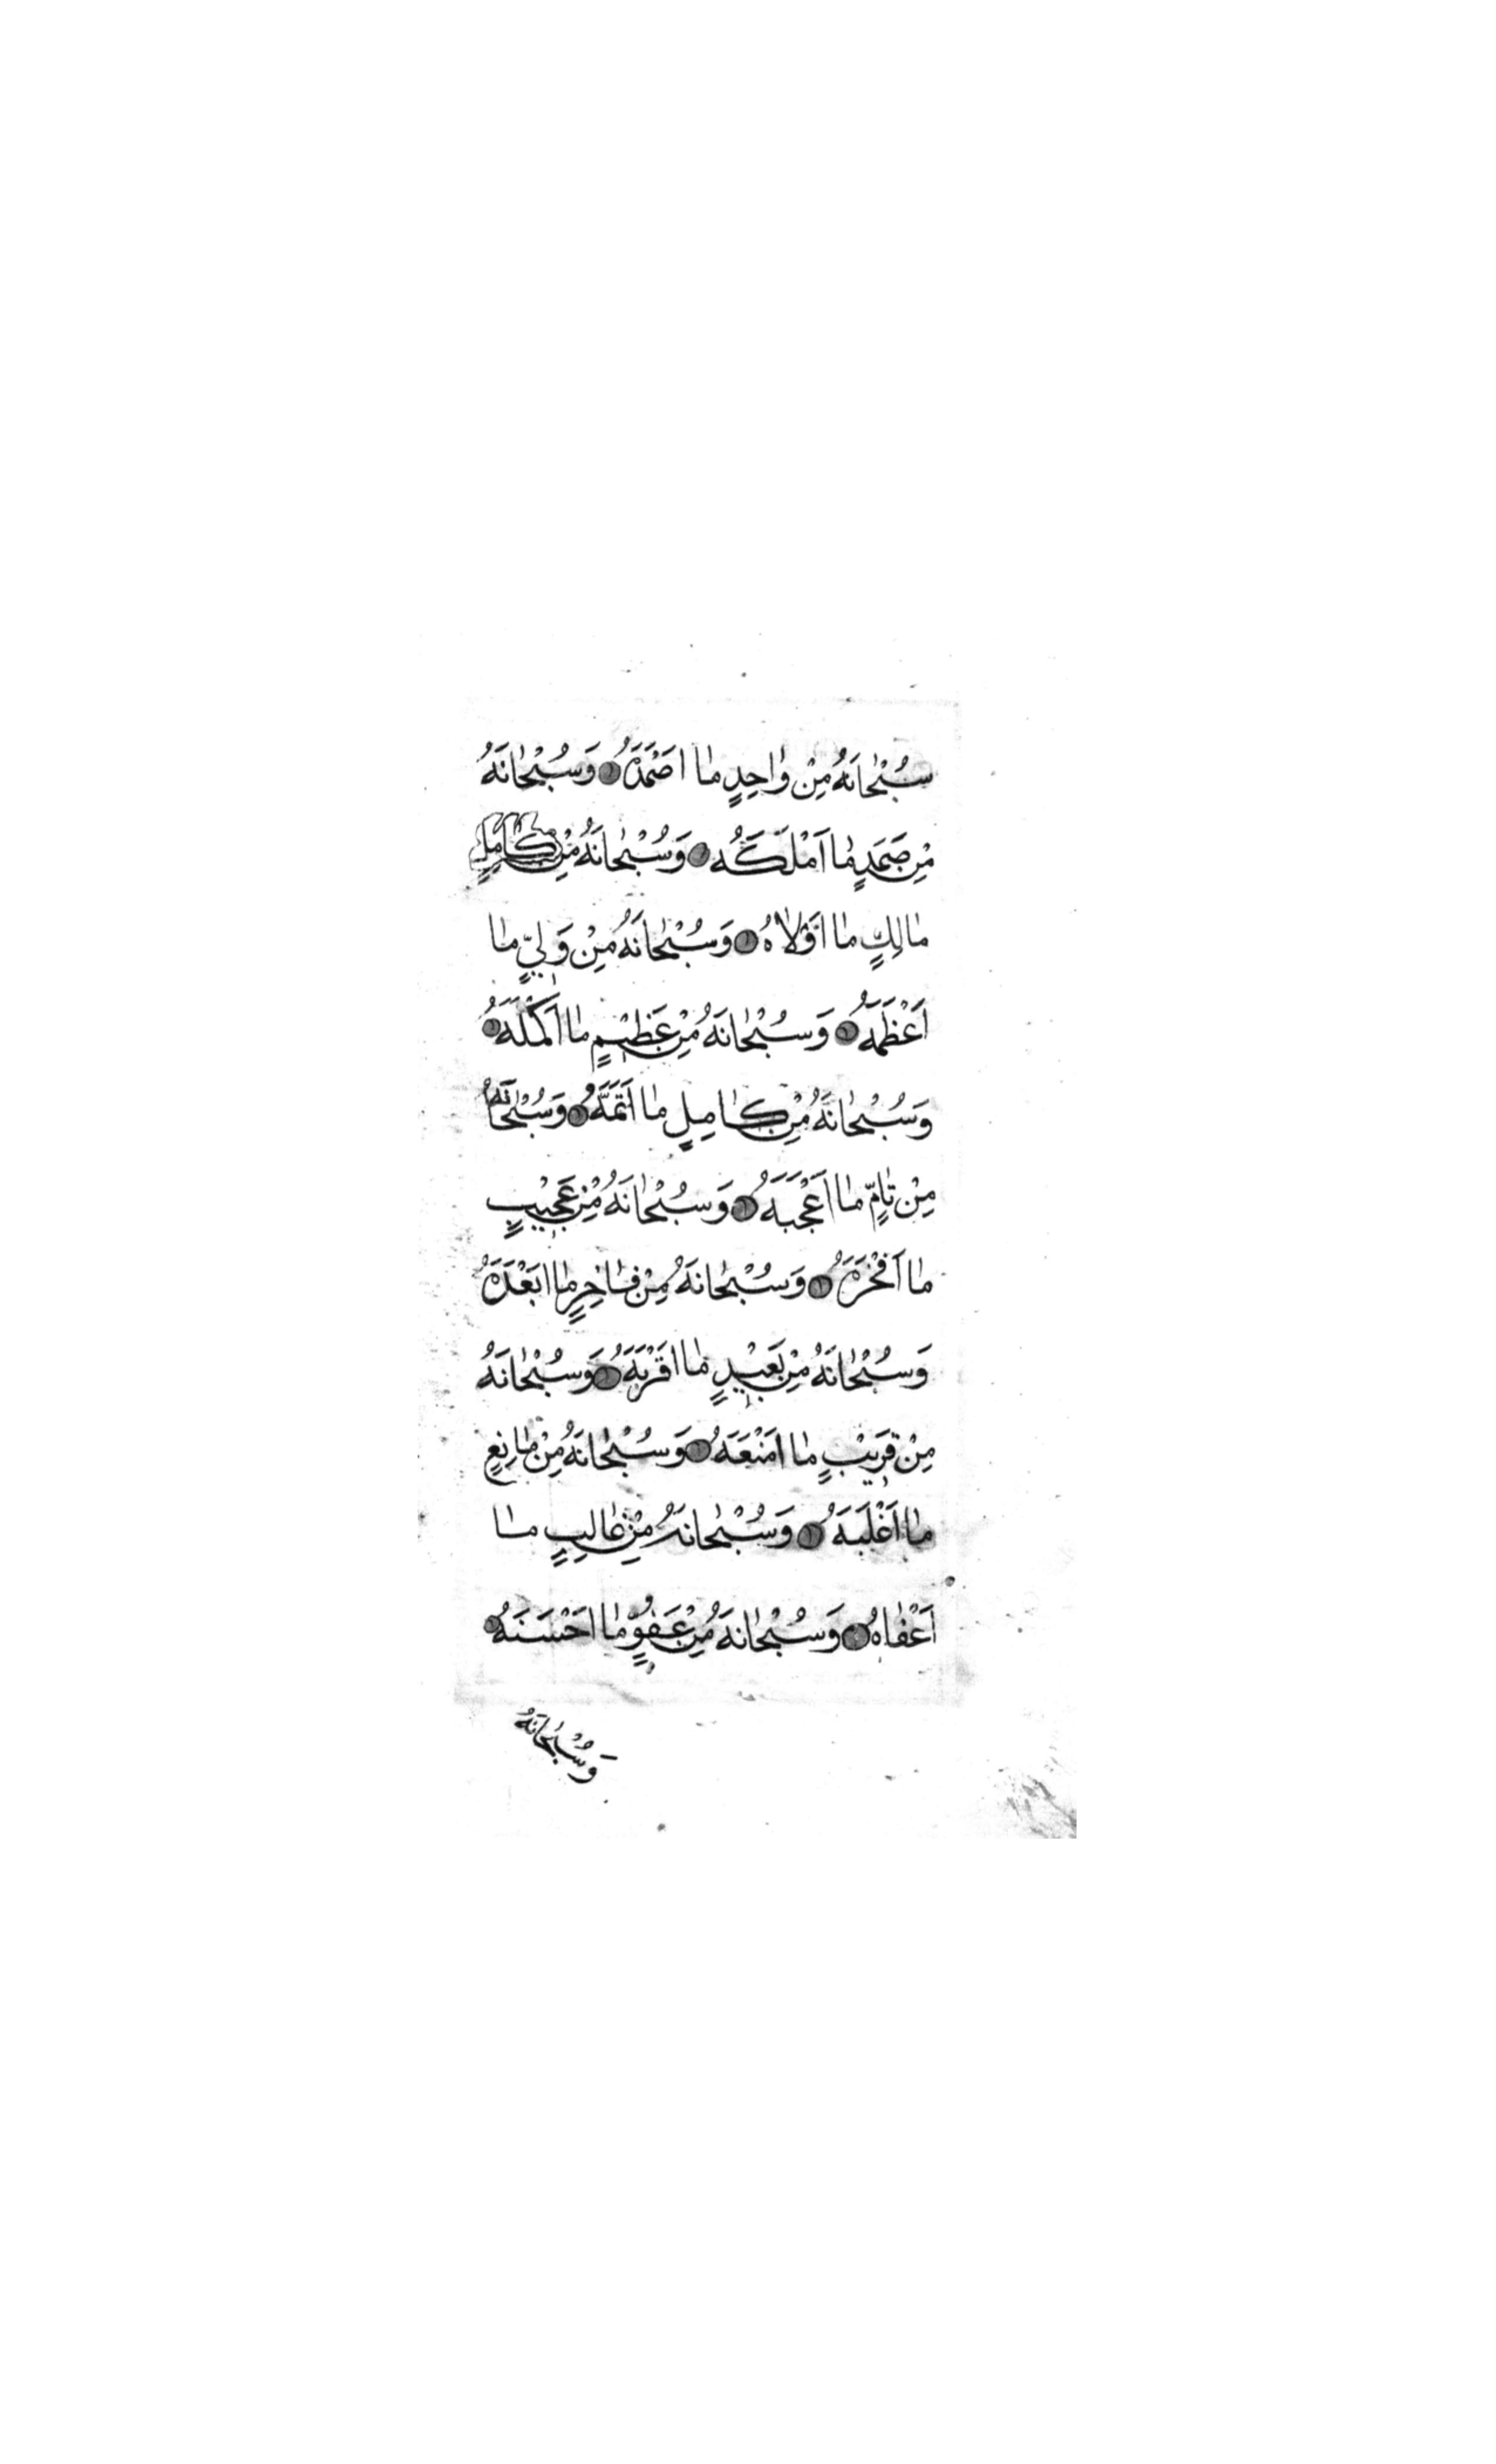 سُبْحٰانَهُ مِنْ وٰاحِدٍ مٰا اَصْمَدَهُ وَسُبْحٰانَهُ
مِنْ صَمَدٍ مٰا اَمْلَكَهُ وَسُبْحٰانَهُ مِنْ كٰامِلٍ
مٰالِكٍ مٰا اَوْلٰاهُ وَسُبْحٰانَهُ مِنْ وَلِيٍّ مٰا
اَعْظَمَهُ وَسُبْحٰانَهُ مِنْ عَظِيْمٍ مٰا اَكْمَلَهُ
وَسُبْحٰانَهُ مِنْ كٰامِلٍ مٰا اَتَمَّهُ وَسُبْحٰانَهُ
مِنْ تٰامٍّ مٰا اَعْجَبَهُ وَسُبْحٰانَهُ مِنْ عَجِيْبٍ
مٰا اَفْخَرَهُ وَسُبْحٰانَهُ مِنْ فٰاخِرٍ مٰا اَبْعَدَهُ
وَسُبْحٰانَهُ مِنْ بَعِيْدٍ مٰا اَقْرَبَهُ وَسُبْحٰانَهُ
مِنْ قَرِيْبٍ مٰا اَمْنَعَهُ وَسُبْحٰانَهُ مِنْ مٰانِعٍ
مٰا اَغْلَبَهُ وَسُبْحٰانَهُ مِنْ غٰالِبٍ مٰا
اَعْفٰاهُ وَسُبْحٰانَهُ مِنْ عَفُوٍّ مٰا اَحْسَنَهُ
وَسُبْحٰانَهُ